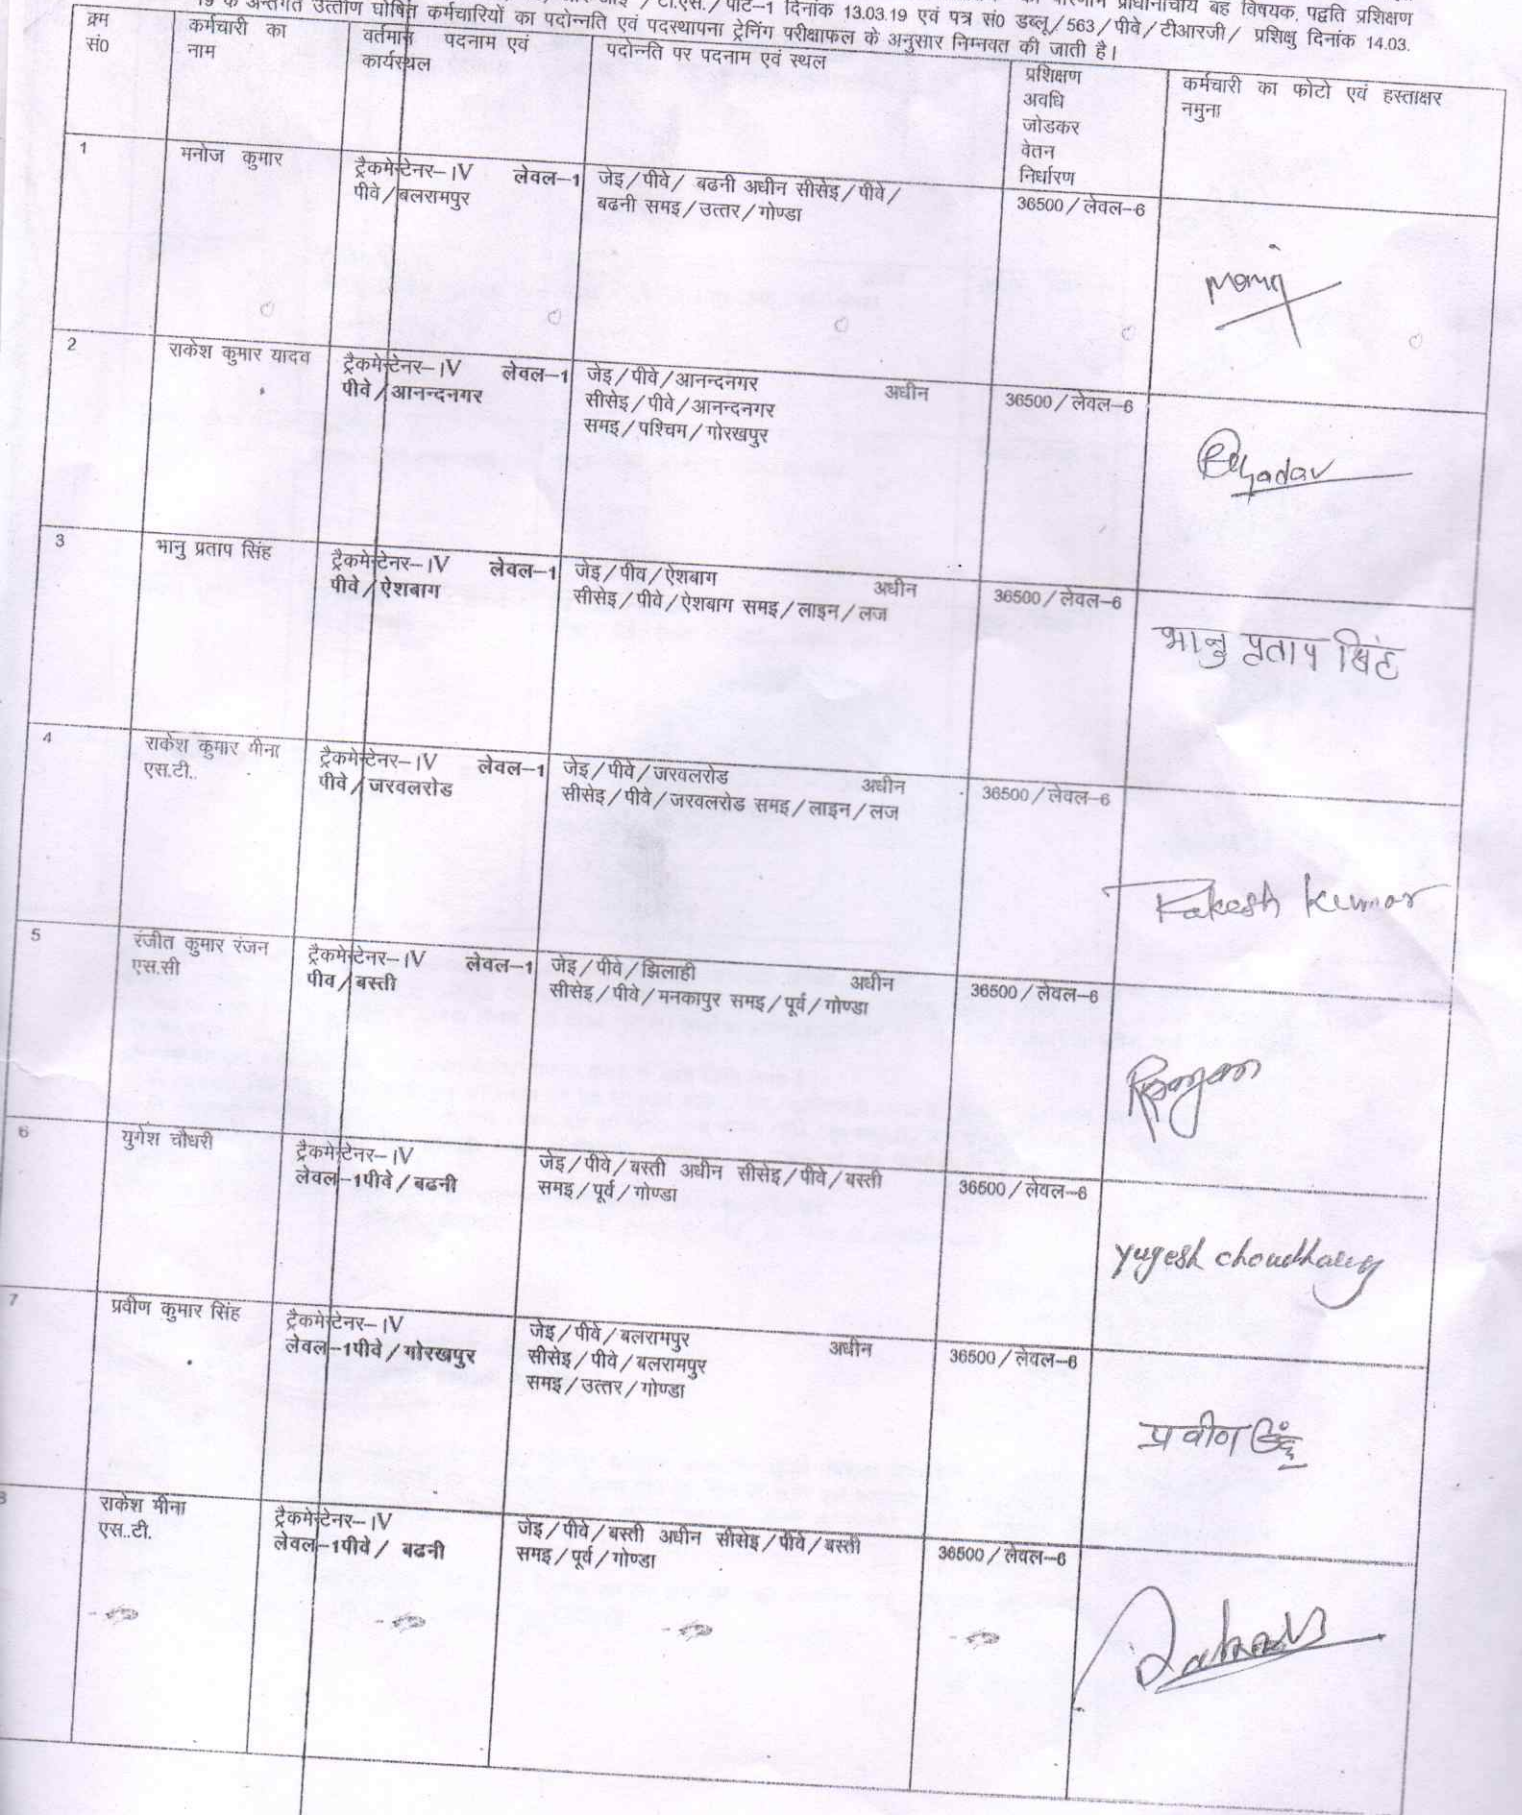 टी.एस./पार्ट–1 दिनांक 13.03.19 एवं पत्र सं0 डब्लू/563/पीवे/टीआरजी/ प्रशिक्षु दिनांक 14.03.
19 के अन्तर्गत उत्तीर्ण घोषित कर्मचारियों का पदोन्नति एवं पदस्थापना ट्रेनिंग परीक्षाफल के अनुसार निम्नवत की जाती है।
क्रम सं0
कर्मचारी का नाम
वर्तमान पदनाम एवं कार्यस्थल
पदोन्नति पर पदनाम एवं स्थल
प्रशिक्षण
अवधि
जोडकर
वेतन
निर्धारण
कर्मचारी का फोटो एवं हस्ताक्षर
नमुना
1
मनोज कुमार
ट्रैकमेन्टेनर–IV लेवल–1
पीवे/बलरामपुर
जेइ/पीवे/ बढनी अधीन सीसेइ/पीवे/
बढनी समइ/उत्तर/गोण्डा
36500/लेवल–6
Manoj
2
राकेश कुमार यादव
ट्रैकमेन्टेनर–IV लेवल–1
पीवे/आनन्दनगर
जेइ/पीवे/आनन्दनगर अधीन
सीसेइ/पीवे/आनन्दनगर
समइ/पश्चिम/गोरखपुर
36500/लेवल–6
3
भानु प्रताप सिंह
ट्रैकमेन्टेनर–IV लेवल–1
पीवे/ऐशबाग
जेइ/पीव/ऐशबाग अधीन
सीसेइ/पीवे/ऐशबाग समइ/लाइन/लज
36500/लेवल–6
भानु प्रताप सिंह
4
राकेश कुमार मीना
एस.टी..
ट्रैकमेन्टेनर–IV लेवल–1
पीवे/जरवलरोड
जेइ/पीवे/जरवलरोड अधीन
सीसेइ/पीवे/जरवलरोड समइ/लाइन/लज
36500/लेवल–6
Rakesh Kumar
5
रंजीत कुमार रंजन
एस.सी
ट्रैकमेन्टेनर–IV लेवल–1
पीव/बस्ती
जेइ/पीवे/झिलाही अधीन
सीसेइ/पीवे/मनकापुर समइ/पूर्व/गोण्डा
36500/लेवल–6
6
युगेश चौधरी
ट्रैकमेन्टेनर–IV
लेवल–1पीवे/बढनी
जेइ/पीवे/बस्ती अधीन सीसेइ/पीवे/बस्ती
समइ/पूर्व/गोण्डा
36500/लेवल–6
Yugesh choudhary
7
प्रवीण कुमार सिंह
ट्रैकमेन्टेनर–IV
लेवल–1पीवे/गोरखपुर
जेइ/पीवे/बलरामपुर अधीन
सीसेइ/पीवे/बलरामपुर
समइ/उत्तर/गोण्डा
36500/लेवल–6
प्रवीण सिंह
8
राकेश मीना
एस..टी.
ट्रैकमेन्टेनर–IV
लेवल–1पीवे/ बढनी
जेइ/पीवे/बस्ती अधीन सीसेइ/पीवे/बस्ती
समइ/पूर्व/गोण्डा
36500/लेवल–6